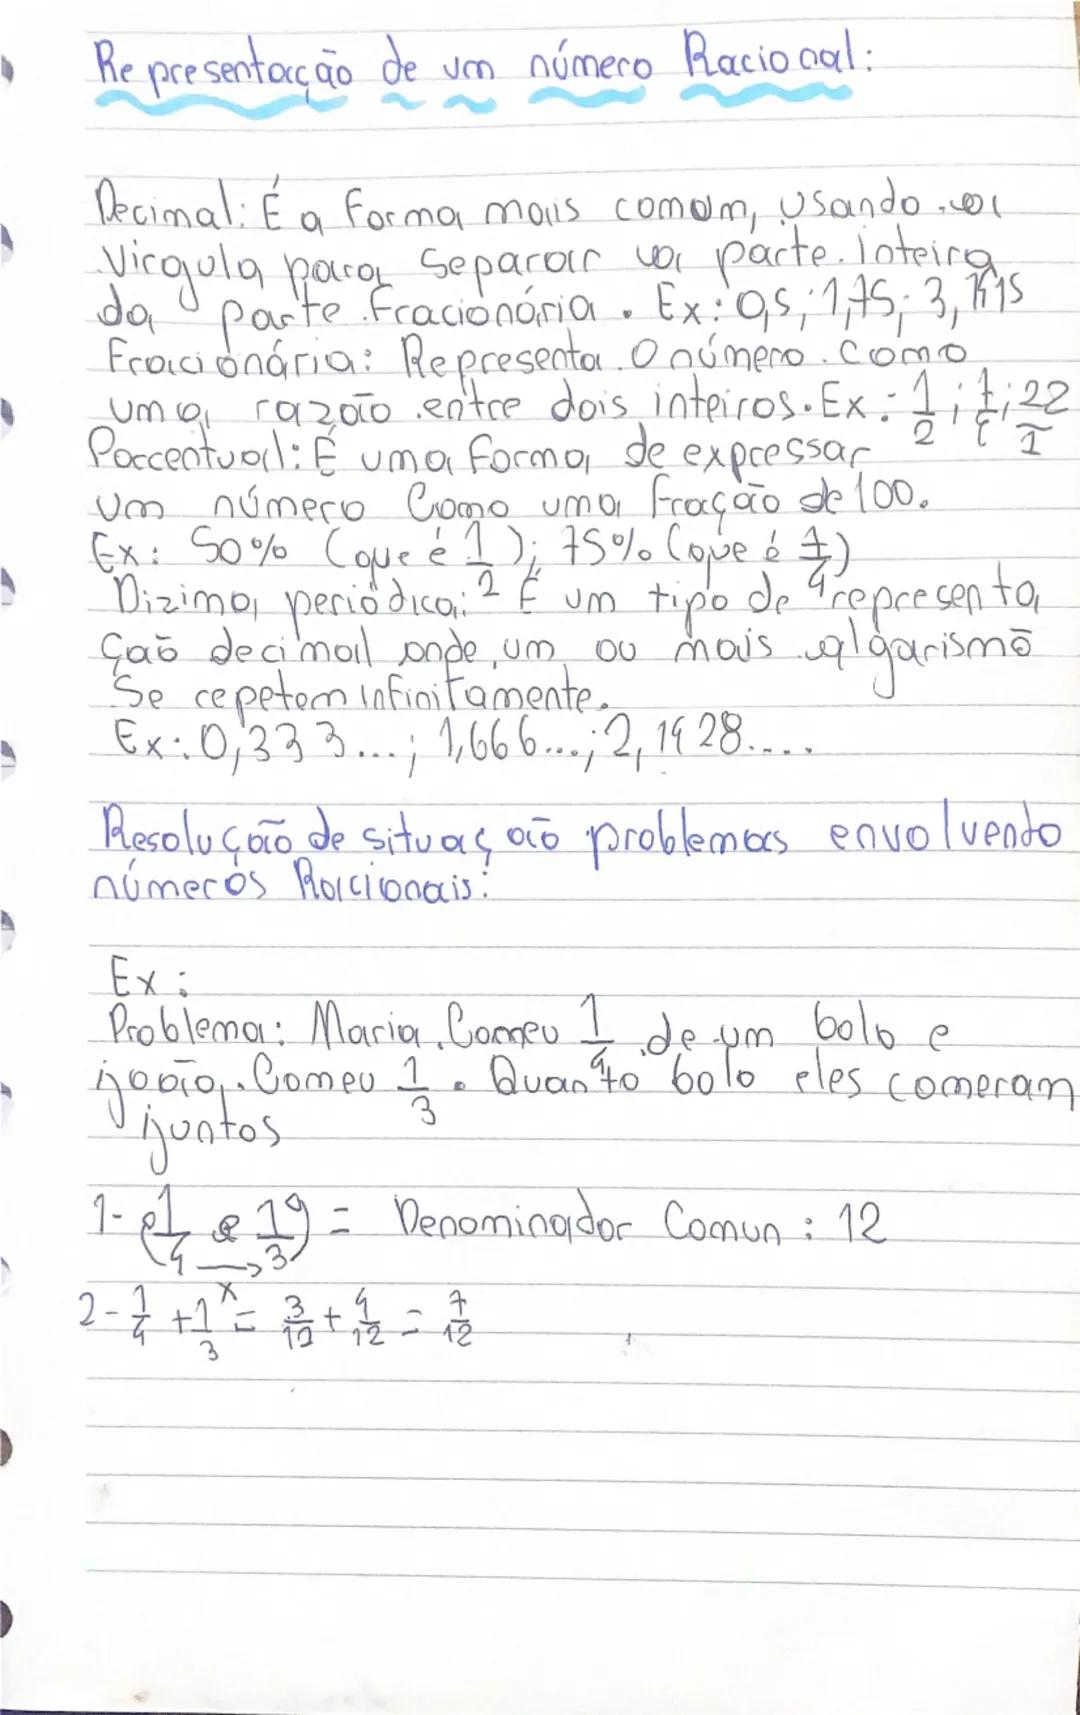 Representação de um número Racional:
Decimal: É a forma mais comum, usando a
Virgula para separar a parte inteira
da parte fracionária. Ex: 0,5; 1,75; 3,1415
Fracionária: Representa o número como
uma razão entre dois inteiros. Ex: 1/2; 22
Porcentual: É uma forma de expressar
um número Como uma fração de 100.
Ex: 50% (que é 1/2); 75% (que é 7/4)
Dizima periódica: É um tipo de representa
ção decimal onde um ou mais algarismo
Se repetem infinitamente.
Ex: 0,333...; 1,666...; 2,1428....
Resolução de situação problemas envolvendo
números Racionais:
Ex:
Problema: Maria Comeu 1/4 de um bolo e
joão Comeu 1/3. Quanto bolo eles comeram
juntos
1- (1/4 e 1/3) = Denominador Comun: 12
2- 1/4 + 1/3 = 3/12 + 4/12 = 7/12